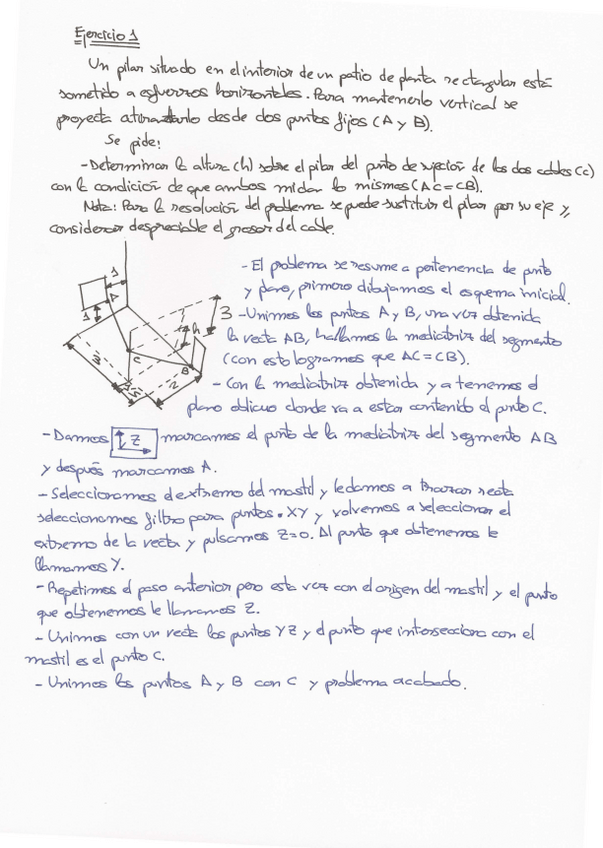 Ejercicio 1
Un pilar situado en el interior de un patio de planta rectangular está
sometido a esfuerzos horizontales. Para mantenerlo vertical se
proyecta desde dos puntos fijos (A y B).
Se pide:
-Determinar la altura (h) sobre el pilar del punto de sujeción de los dos cables (C)
con la condición de que ambos midan lo mismos (AC=CB).
Nota: Para la resolución del problema se puede sustituir el pilar por su eje y,
considerar despreciable el grosor del cable.
1
A
1
3
C
h
3
B
2
- El problema se resume a pertenencia de punto
y plano, primero dibujamos el esquema inicial.
- Unimos los puntos A y B, una vez obtenida
la recta AB, hallamos la mediatriz del segmento
(con esto logramos que AC=CB).
- Con la mediatriz obtenida ya tenemos el
plano oblicuo donde va a estar contenido el punto C.
- Damos Z marcamos el punto de la mediatriz del segmento AB
y después marcamos A.
- Seleccionamos el extremo del mastil y le damos a trazar recta
seleccionamos filtro para puntos .XY y volvemos a seleccionar el
extremo de la recta y pulsamos Z=0. Al punto que obtenemos le
llamamos Y.
- Repetimos el paso anterior pero esta vez con el origen del mastil y el punto
que obtenemos le llamamos Z.
- Unimos con un recta los puntos YZ y el punto que intersecciona con el
mastil es el punto C.
- Unimos los puntos A y B con C y problema acabado.